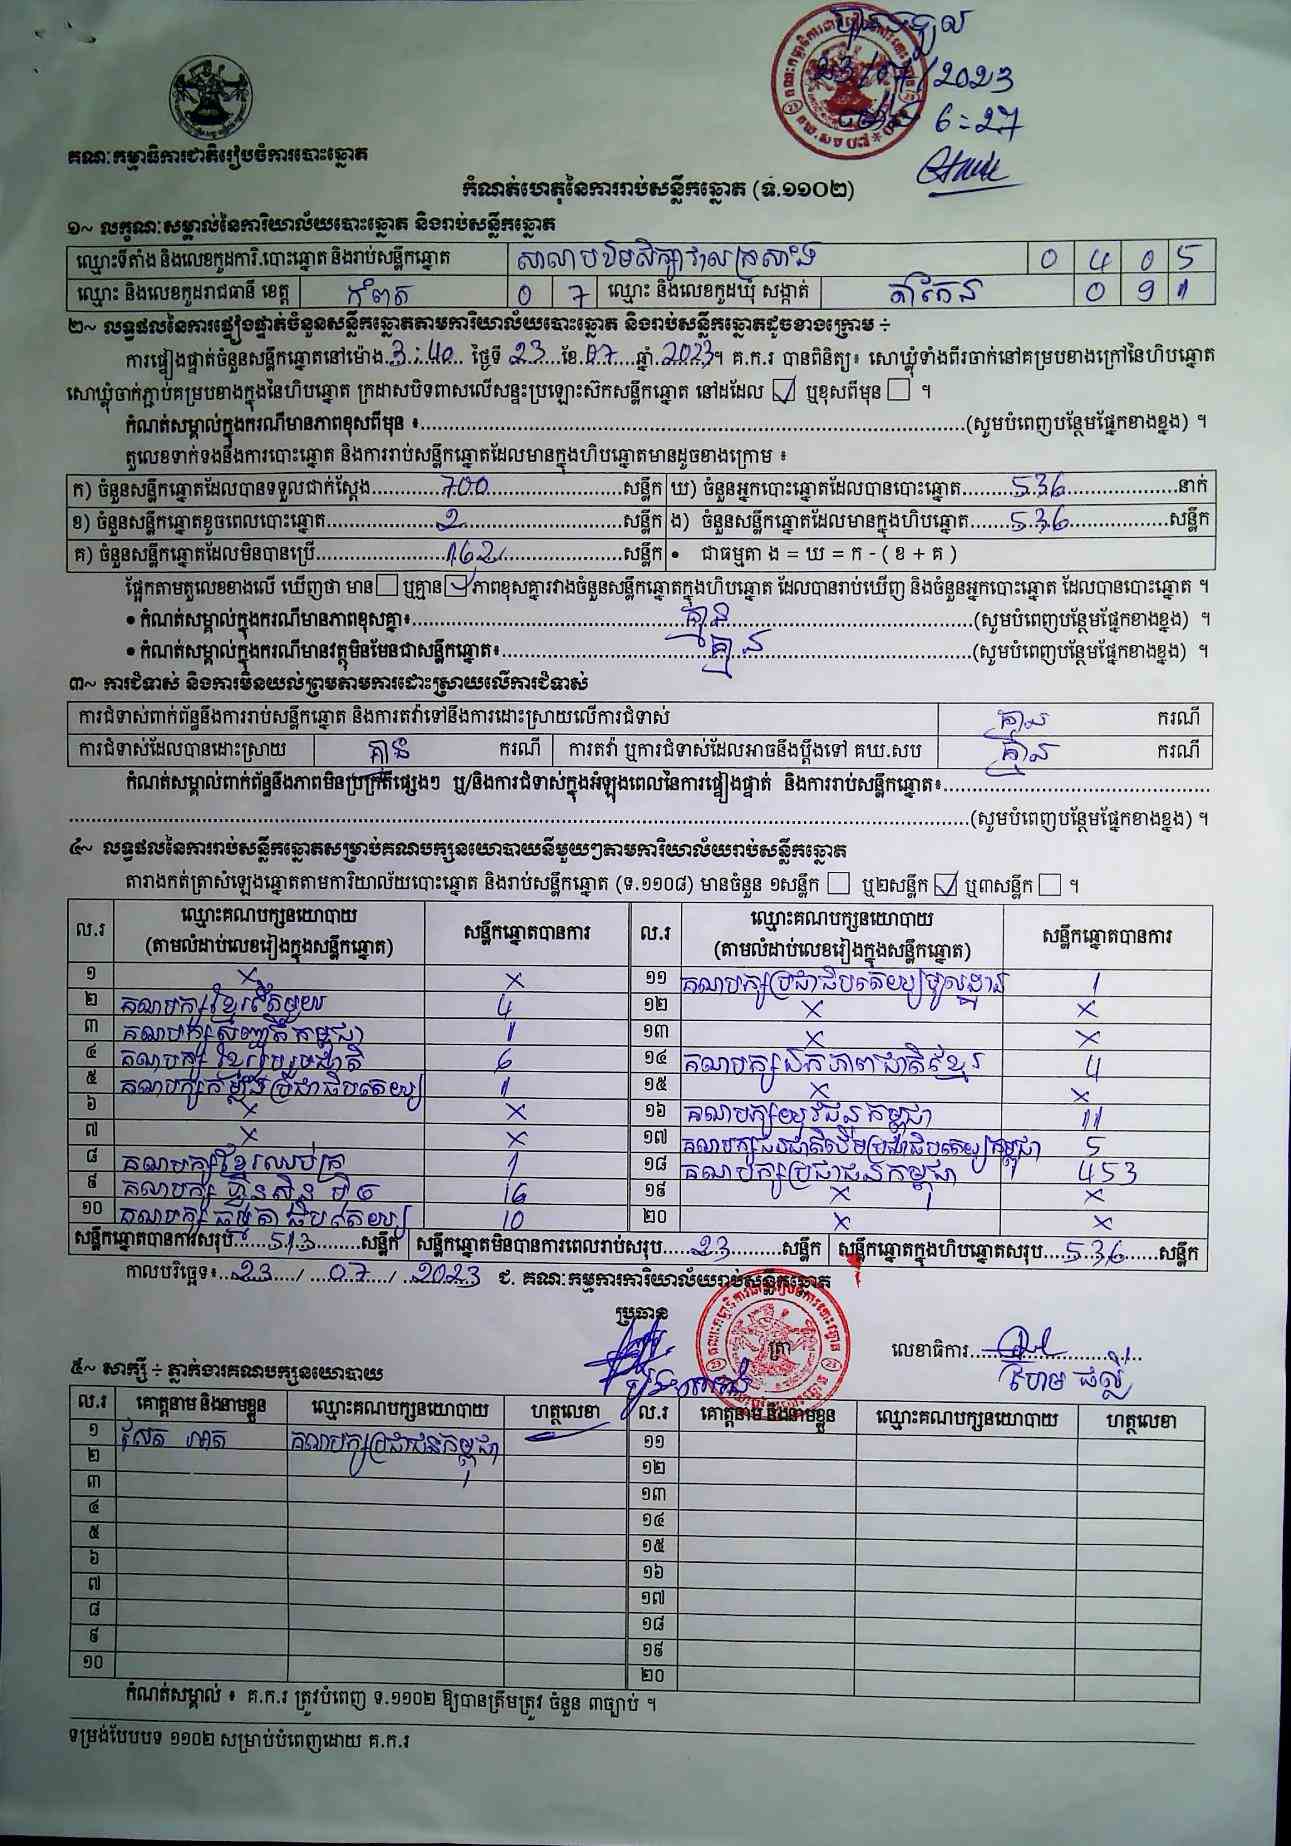 23/07/2023
6:27
គណៈកម្មាធិការជាតិរៀបចំការបោះឆ្នោត
កំណត់ហេតុនៃការរាប់សន្លឹកឆ្នោត (ទ.១១០២)
១~ លក្ខណៈសម្គាល់នៃការិយាល័យបោះឆ្នោត និងរាប់សន្លឹកឆ្នោត
ឈ្មោះទីតាំង និងលេខកូដការិ.បោះឆ្នោត និងរាប់សន្លឹកឆ្នោត សាលាបឋមសិក្សាវាលក្រសាំង 0 4 0 5
ឈ្មោះ និងលេខកូដរាជធានី ខេត្ត កំពត 0 7 ឈ្មោះ និងលេខកូដឃុំ សង្កាត់ តាកែន 0 9 1
២~ លទ្ធផលនៃការផ្ទៀងផ្ទាត់ចំនួនសន្លឹកឆ្នោតតាមការិយាល័យបោះឆ្នោត និងរាប់សន្លឹកឆ្នោតដូចខាងក្រោម ÷
ការផ្ទៀងផ្ទាត់ចំនួនសន្លឹកឆ្នោតនៅម៉ោង 3:40 ថ្ងៃទី 23 ខែ 07 ឆ្នាំ 2023។ គ.ក.រ បានពិនិត្យ៖ សោឃ្លុំទាំងពីរចាក់នៅគម្របខាងក្រៅនៃហិបឆ្នោត
សោឃ្លុំចាក់ភ្ជាប់គម្របខាងក្នុងនៃហិបឆ្នោត ក្រដាសបិទពាសលើសន្ទះប្រឡោះស៊កសន្លឹកឆ្នោត នៅដដែល ☑ ឬខុសពីមុន ☐ ។
កំណត់សម្គាល់ក្នុងករណីមានភាពខុសពីមុន ៖ (សូមបំពេញបន្ថែមផ្នែកខាងខ្នង) ។
តួលេខទាក់ទងនឹងការបោះឆ្នោត និងការរាប់សន្លឹកឆ្នោតដែលមានក្នុងហិបឆ្នោតមានដូចខាងក្រោម ៖
ក) ចំនួនសន្លឹកឆ្នោតដែលបានទទួលជាក់ស្តែង 700 សន្លឹក ឃ) ចំនួនអ្នកបោះឆ្នោតដែលបានបោះឆ្នោត 536 នាក់
ខ) ចំនួនសន្លឹកឆ្នោតខូចពេលបោះឆ្នោត 2 សន្លឹក ង) ចំនួនសន្លឹកឆ្នោតដែលមានក្នុងហិបឆ្នោត 536 សន្លឹក
គ) ចំនួនសន្លឹកឆ្នោតដែលមិនបានប្រើ 162 សន្លឹក • ជាធម្មតា ង = ឃ = ក - ( ខ + គ )
ផ្អែកតាមតួលេខខាងលើ ឃើញថា មាន ☐ ឬគ្មាន ☑ ភាពខុសគ្នារវាងចំនួនសន្លឹកឆ្នោតក្នុងហិបឆ្នោត ដែលបានរាប់ឃើញ និងចំនួនអ្នកបោះឆ្នោត ដែលបានបោះឆ្នោត ។
• កំណត់សម្គាល់ក្នុងករណីមានភាពខុសគ្នា៖ គ្មាន (សូមបំពេញបន្ថែមផ្នែកខាងខ្នង) ។
• កំណត់សម្គាល់ក្នុងករណីមានវត្ថុមិនមែនជាសន្លឹកឆ្នោត៖ គ្មាន (សូមបំពេញបន្ថែមផ្នែកខាងខ្នង) ។
៣~ ការជំទាស់ និងការមិនយល់ព្រមតាមការដោះស្រាយលើការជំទាស់
ការជំទាស់ពាក់ព័ន្ធនឹងការរាប់សន្លឹកឆ្នោត និងការតវ៉ាទៅនឹងការដោះស្រាយលើការជំទាស់ គ្មាន ករណី
ការជំទាស់ដែលបានដោះស្រាយ គ្មាន ករណី ការតវ៉ា ឬការជំទាស់ដែលអាចនឹងប្តឹងទៅ គឃ.សប គ្មាន ករណី
កំណត់សម្គាល់ពាក់ព័ន្ធនឹងភាពមិនប្រក្រតីផ្សេងៗ ឬ/និងការជំទាស់ក្នុងអំឡុងពេលនៃការផ្ទៀងផ្ទាត់ និងការរាប់សន្លឹកឆ្នោត៖
(សូមបំពេញបន្ថែមផ្នែកខាងខ្នង) ។
៤~ លទ្ធផលនៃការរាប់សន្លឹកឆ្នោតសម្រាប់គណបក្សនយោបាយនីមួយៗតាមការិយាល័យរាប់សន្លឹកឆ្នោត
តារាងកត់ត្រាសំឡេងឆ្នោតតាមការិយាល័យបោះឆ្នោត និងរាប់សន្លឹកឆ្នោត (ទ.១១០៨) មានចំនួន ១សន្លឹក ☐ ឬ២សន្លឹក ☑ ឬ៣សន្លឹក ☐ ។
ល.រ ឈ្មោះគណបក្សនយោបាយ (តាមលំដាប់លេខរៀងក្នុងសន្លឹកឆ្នោត) សន្លឹកឆ្នោតបានការ ល.រ ឈ្មោះគណបក្សនយោបាយ (តាមលំដាប់លេខរៀងក្នុងសន្លឹកឆ្នោត) សន្លឹកឆ្នោតបានការ
១ × × ១១ គណបក្សប្រជាធិបតេយ្យមូលដ្ឋាន 1
២ គណបក្សខ្មែរតែមួយ 4 ១២ × ×
៣ គណបក្សសញ្ជាតិកម្ពុជា 1 ១៣ × ×
៤ គណបក្សខ្មែររួបរួមជាតិ 6 ១៤ គណបក្សឯកភាពជាតិខ្មែរ 4
៥ គណបក្សកម្លាំងប្រជាធិបតេយ្យ 1 ១៥ × ×
៦ × × ១៦ គណបក្សយុវជនកម្ពុជា 11
៧ × × ១៧ គណបក្សជនជាតិដើមប្រជាធិបតេយ្យកម្ពុជា 5
៨ គណបក្សខ្មែរឈប់ក្រ 1 ១៨ គណបក្សប្រជាជនកម្ពុជា 453
៩ គណបក្សហ្វ៊ុនស៊ិនប៉ិច 16 ១៩ × ×
១០ គណបក្សធម្មតាធិបតេយ្យ 10 ២០ × ×
សន្លឹកឆ្នោតបានការសរុប 513 សន្លឹក សន្លឹកឆ្នោតមិនបានការពេលរាប់សរុប 23 សន្លឹក សន្លឹកឆ្នោតក្នុងហិបឆ្នោតសរុប 536 សន្លឹក
កាលបរិច្ឆេទ៖ 23 / 07 / 2023 ជ. គណៈកម្មការការិយាល័យរាប់សន្លឹកឆ្នោត
ប្រធាន
ត្រា
លេខាធិការ
ហែម ផល្លី
៥~ សាក្សី ÷ ភ្នាក់ងារគណបក្សនយោបាយ
ល.រ គោត្តនាម និងនាមខ្លួន ឈ្មោះគណបក្សនយោបាយ ហត្ថលេខា ល.រ គោត្តនាម និងនាមខ្លួន ឈ្មោះគណបក្សនយោបាយ ហត្ថលេខា
១ សែត អាត គណបក្សប្រជាជនកម្ពុជា ១១
២ ១២
៣ ១៣
៤ ១៤
៥ ១៥
៦ ១៦
៧ ១៧
៨ ១៨
៩ ១៩
១០ ២០
កំណត់សម្គាល់ ៖ គ.ក.រ ត្រូវបំពេញ ទ.១១០២ ឱ្យបានត្រឹមត្រូវ ចំនួន ៣ច្បាប់ ។
ទម្រង់បែបបទ ១១០២ សម្រាប់បំពេញដោយ គ.ក.រ